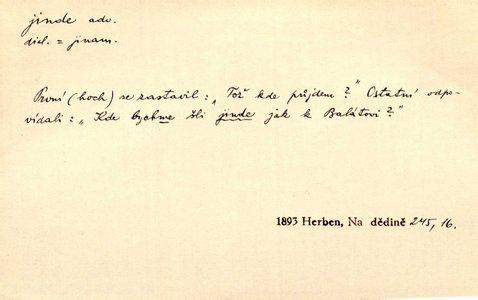 jinde adv.
dial. = jinam.
První (hoch) se zastavil: „Tož kde půjdem?" Ostatní odpo-
vídali: „Kde bychme šli jinde jak k Balátovi?"
1893 Herben, Na dědině 245, 16.